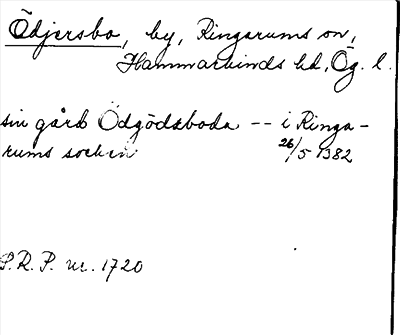 Ödjersbo, by, Ringarums sn,
Hammarkinds hd, Ög. l.
sin gård Ödgödzboda -- i Ringa-
rums socken 26/5 1382
S.R.P. nr. 1720